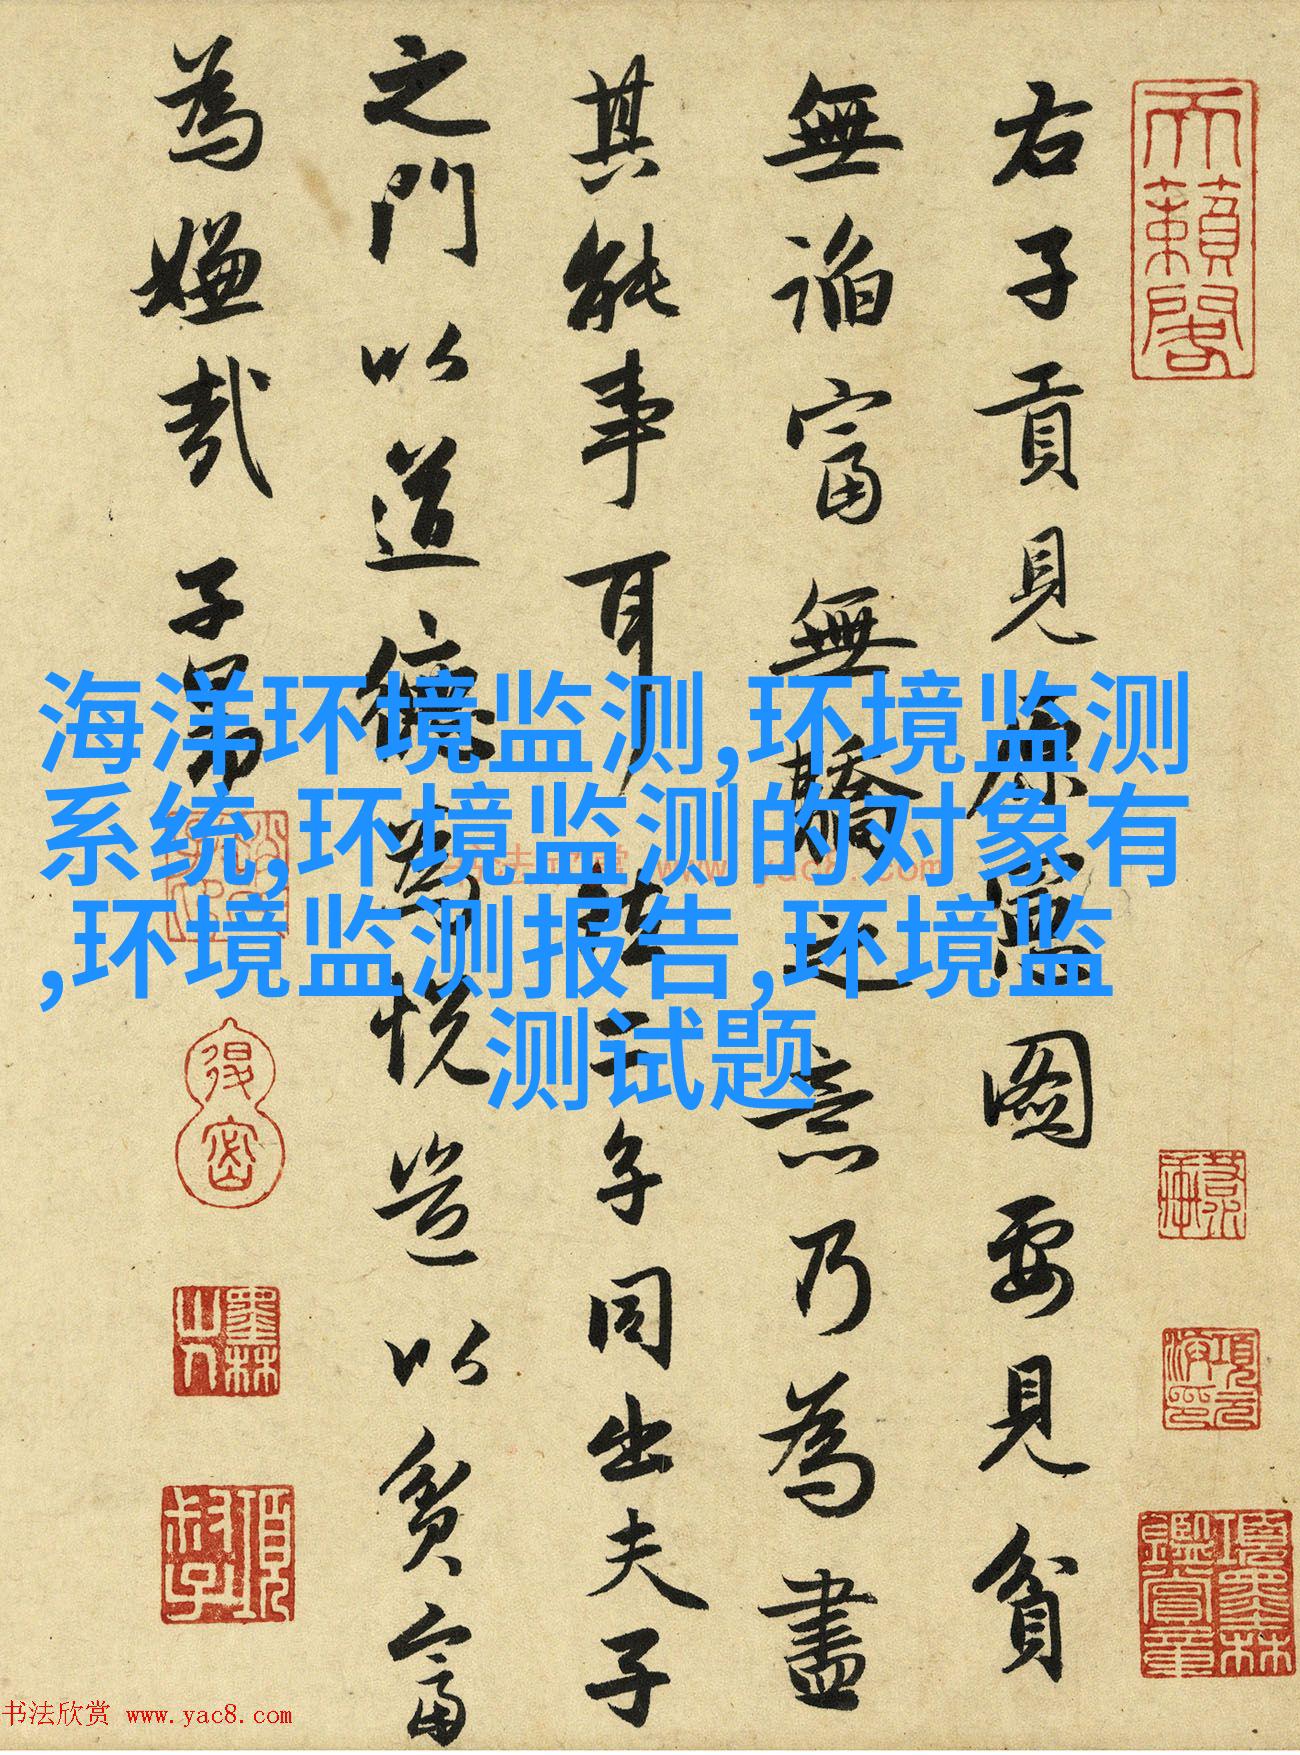 右子貢見原憲圖要見貧
無諂富無驕之意乃為盡
其能事耳
子同出夫子
之門以道德為悅豈以貧富
為嫌哉 子昂
天籟閣
海洋环境监测,环境监测
系统,环境监测的对象有
,环境监测报告,环境监
测试题
墨林
書法欣赏 www.yac8.com